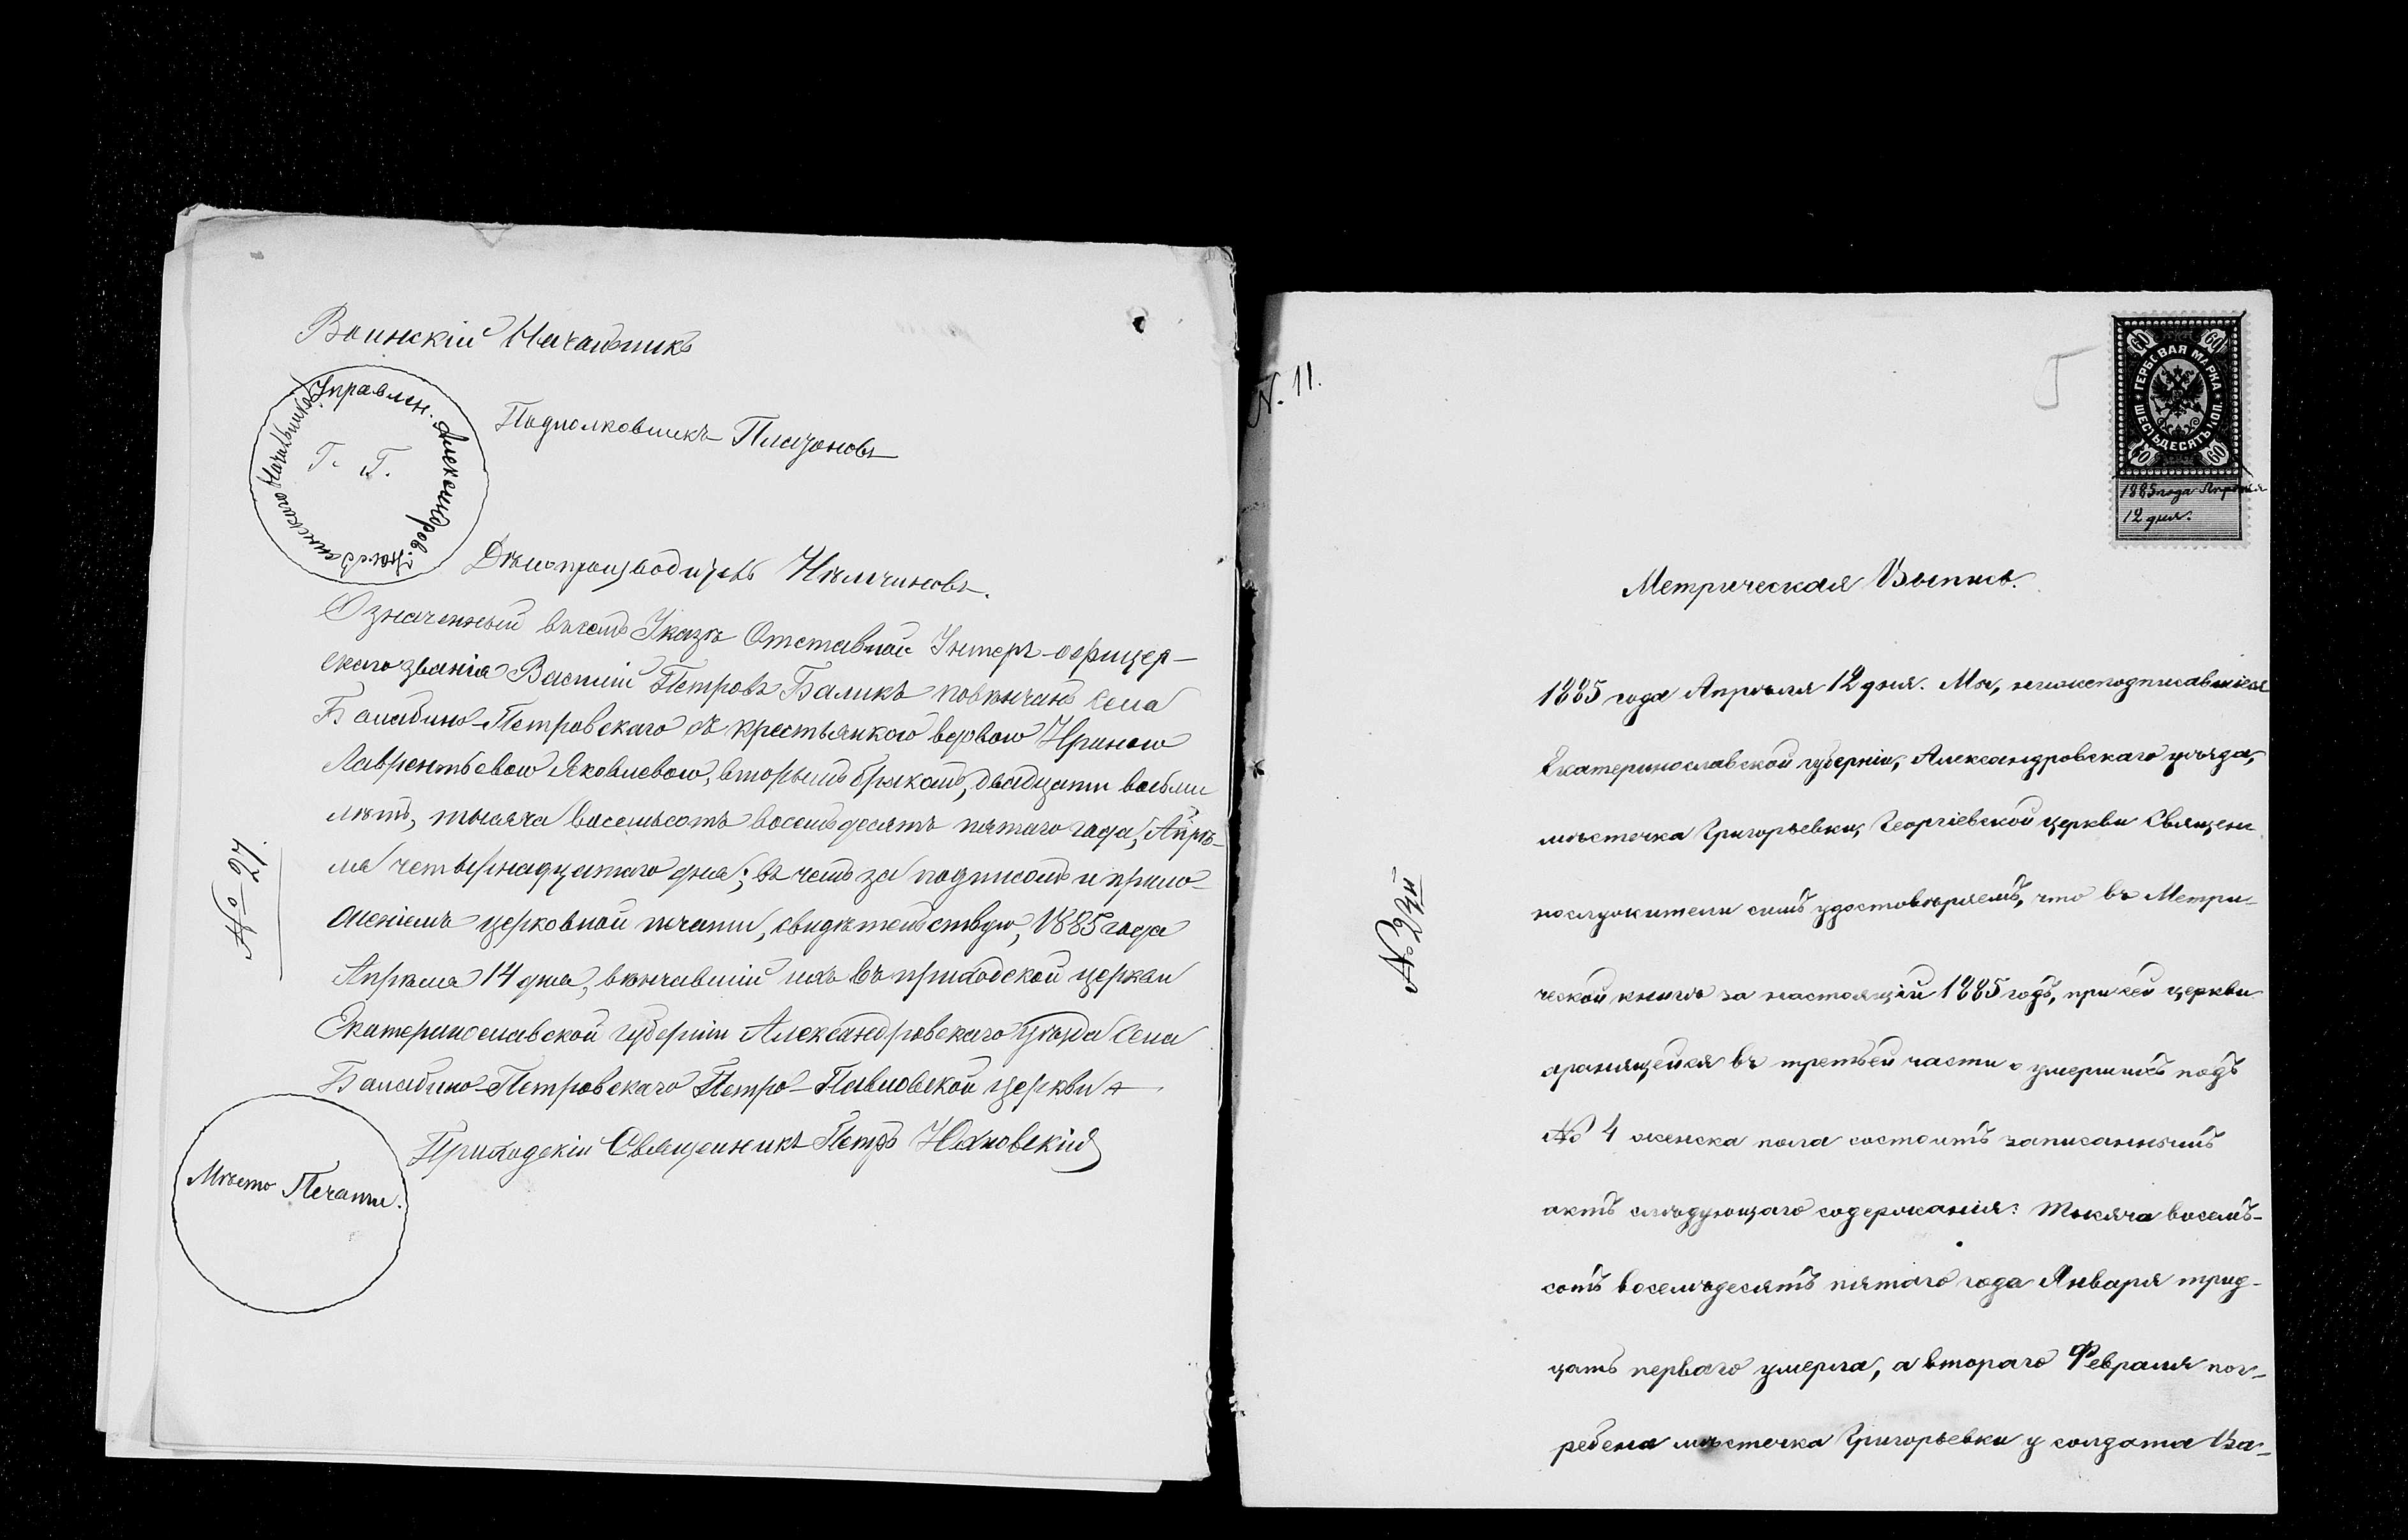 Воинскій Начальникъ
Управлен. Александров. Уѣзд. Воинскаго Начальника
Г. Г.
Подполковникъ Плазоновъ
Дѣлопроизводитель Нѣмчиновъ.
Означенный въ семъ Указѣ Отставной Унтеръ-офицер-
скаго званія Василій Петровъ Баликъ повѣнчанъ Села
Балабино-Петровскаго съ крестьянкою вдовою Ириною
Лаврентьевою Яковлевою, вторымъ бракомъ, двадцати восьми
лѣтъ, тысяча восемьсотъ восемьдесятъ пятаго года, Апрѣ-
ля четырнадцатаго дня; въ чемъ за подписомъ и прило-
женіемъ церковной печати, свидѣтельствую, 1885 года
Апрѣля 14 дня, вѣнчавшій ихъ въ приходской церкви
Екатеринославской губерніи Александровскаго уѣзда Села
Балабино-Петровскаго Петро-Павловской церкви
Приходскій Священникъ Петръ
Мѣсто Печати.
№ 27.
N. 11.
ГЕРБОВАЯ МАРКА
ШЕСТЬДЕСЯТЪ КОП.
60 60
60 60
1885 года Апрѣля
12 дня.
Метрическая Выпись.
1885 года Апрѣля 12 дня. Мы, нижеподписавшіеся
Екатеринославской губерніи, Александровскаго уѣзда,
мѣстечка Григорьевки, Георгіевской церкви Священ
нослужители симъ удостовѣряемъ, что въ Метри-
ческой книгѣ за настоящій 1885 годъ, при сей церкви
хранящейся въ третьей части о умершихъ подъ
№ 4 женска пола состоитъ записаннымъ
актъ слѣдующаго содержанія: Тысяча восемь-
сотъ восемьдесятъ пятаго года Января трид-
цать перваго умерла, а втораго Февраля пог-
ребена мѣстечка Григорьевки у солдата Ва-